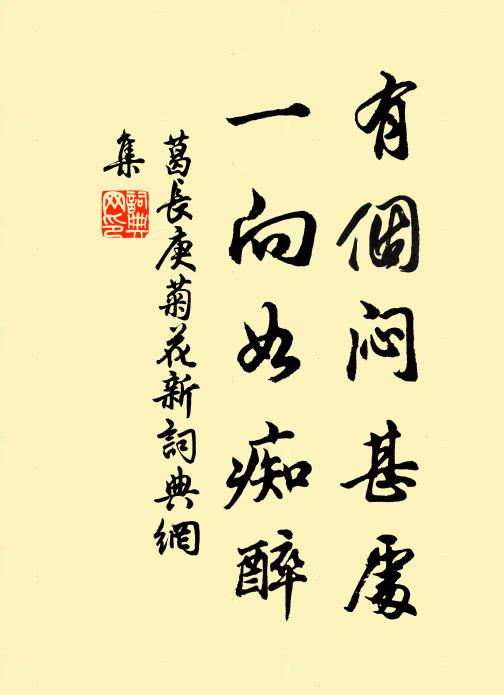 有個悶甚處
一向如痴醉
葛長庚菊花新詞典網
集
詞典网印